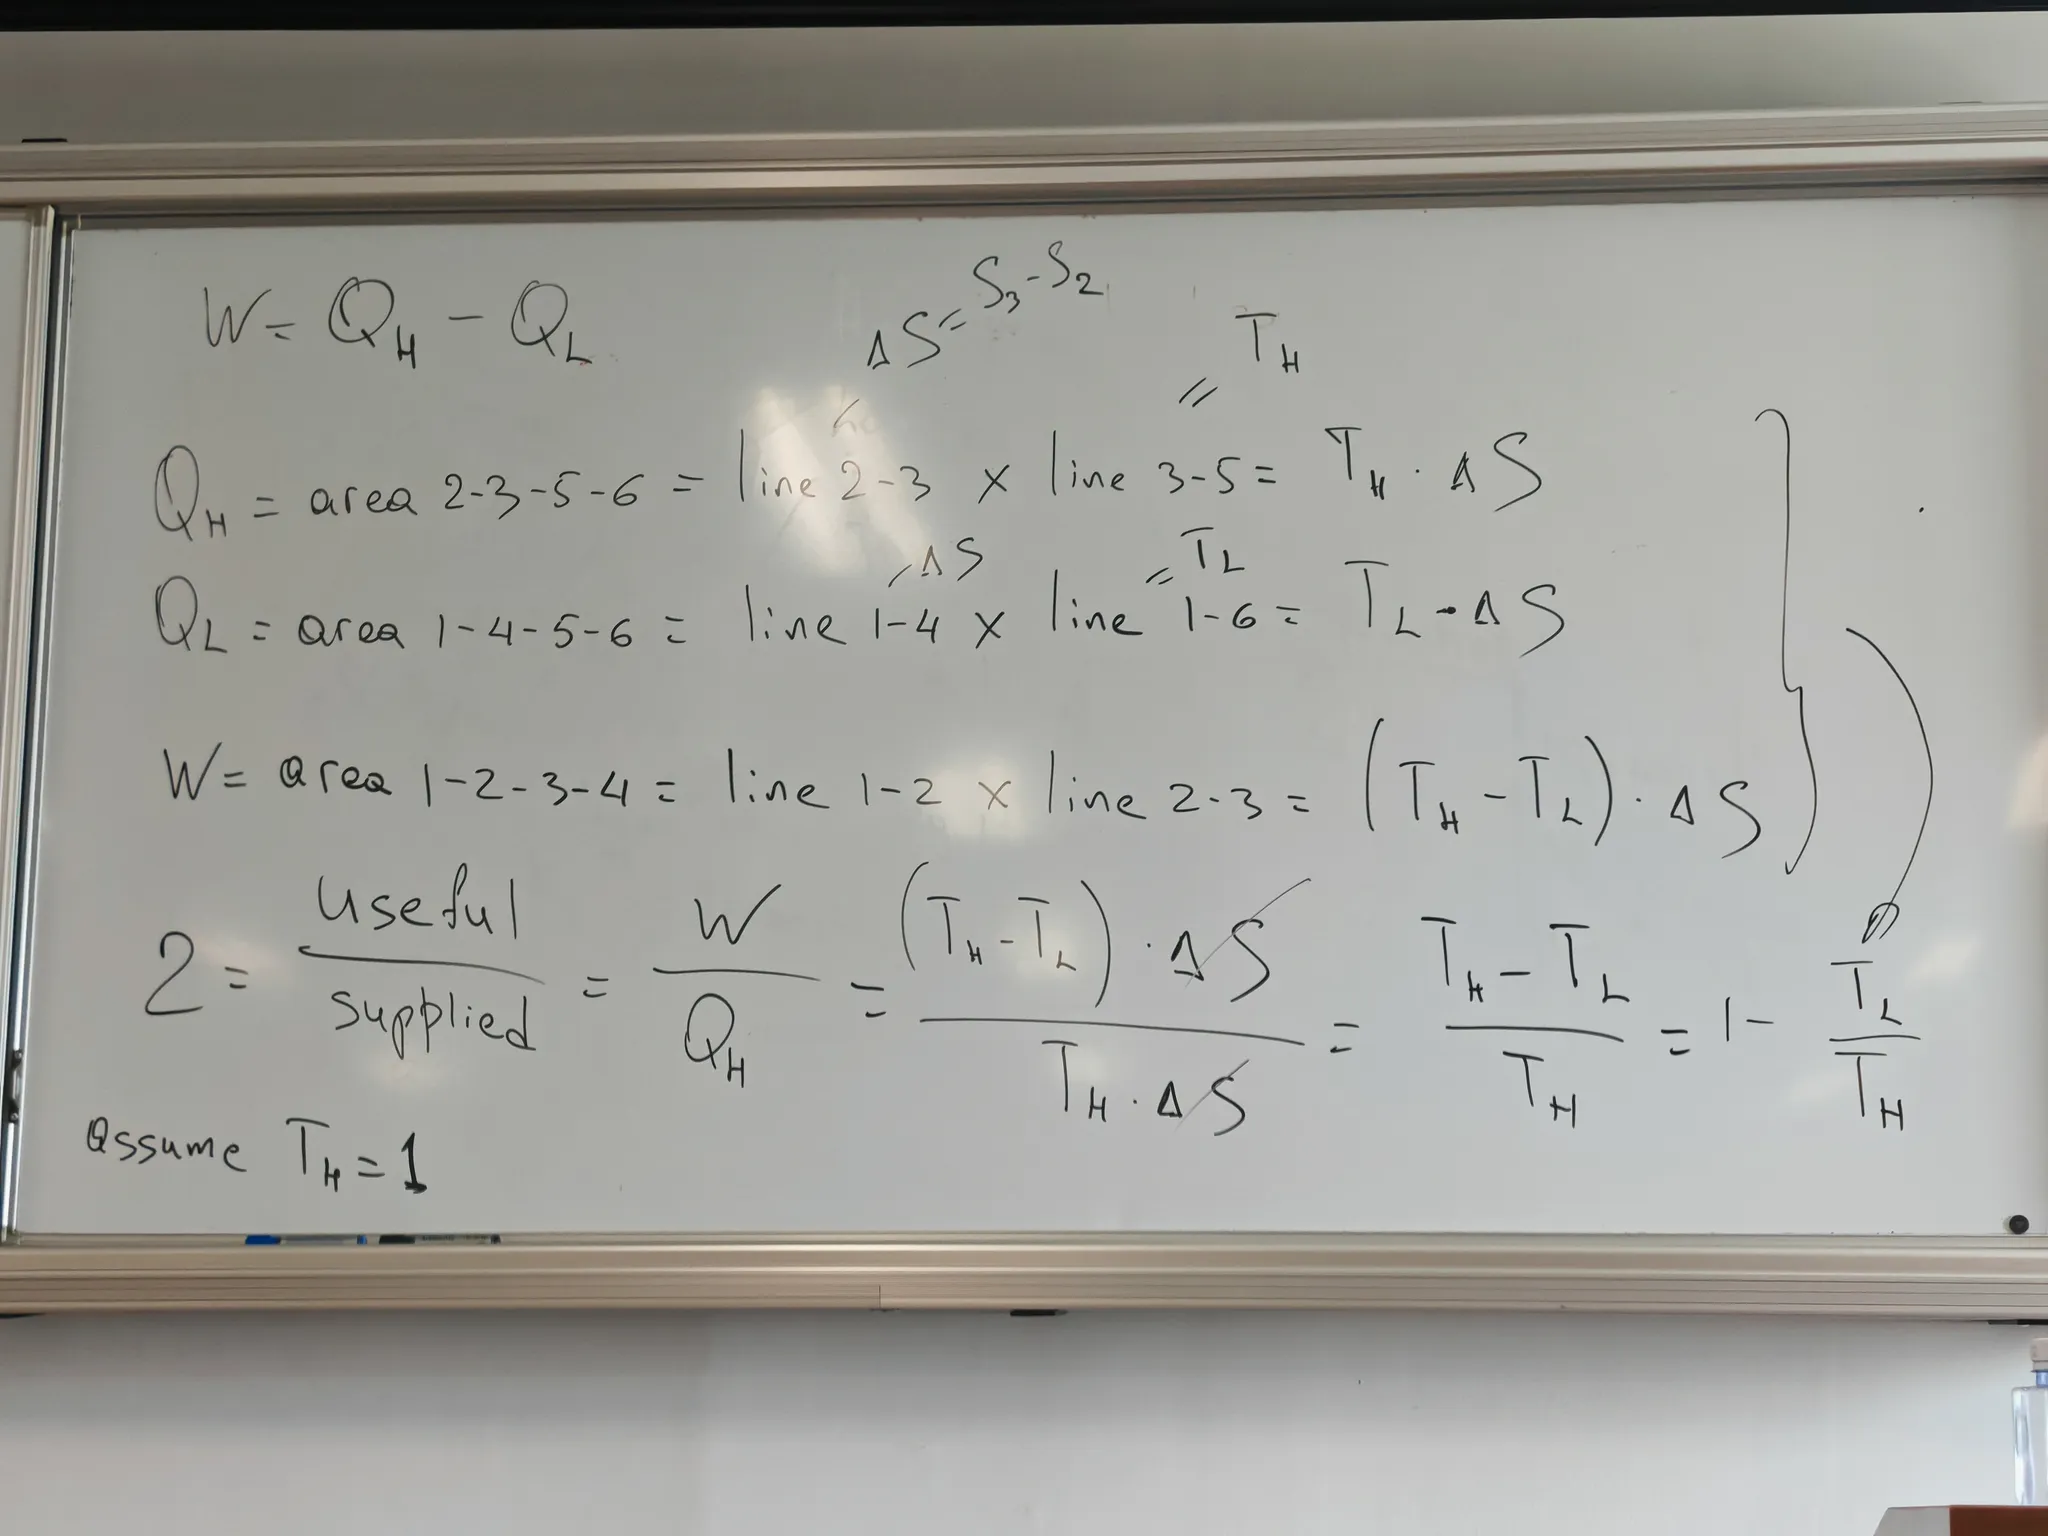 W = Q_H - Q_L
ΔS = S_3 - S_2
= T_H
Q_H = area 2-3-5-6 = line 2-3 × line 3-5 = T_H · ΔS
= ΔS
= T_L
Q_L = area 1-4-5-6 = line 1-4 × line 1-6 = T_L · ΔS
W = area 1-2-3-4 = line 1-2 × line 2-3 = (T_H - T_L) · ΔS
η = useful / supplied = W / Q_H = (T_H - T_L) · ΔS / T_H · ΔS = T_H - T_L / T_H = 1 - T_L / T_H
assume T_H = 1